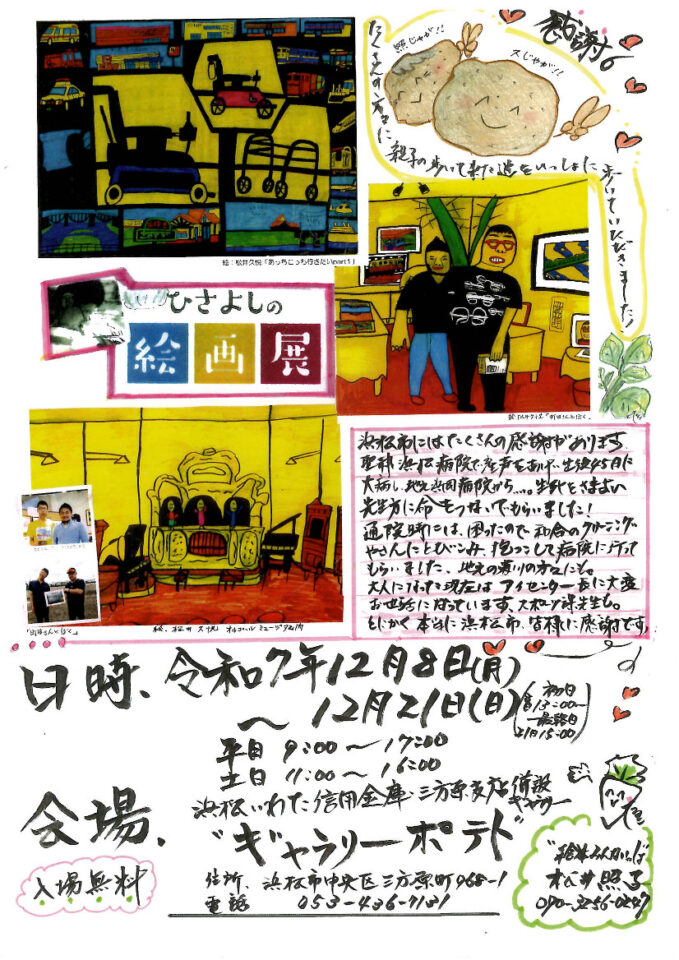 感謝
たくさんの方々に
親子の歩いて来た道をいっしょに
歩いていただきました!
照じゃが!!
久じゃが!!
絵:松井久悦「あっちこっち行きたいpart1」
ひさよしの
絵画展
浜松市にはたくさんの感謝があります。
聖隷浜松病院で産声をあげ、生後45日に
大病し、地元浜岡病院から…。生死をさまよい
先生方に命をつないでもらいました!
通院時には、困ったので和合のクリーニング
やさんにとびこみ、抱っこして病院に行って
もらいました、地元の周りの方々にも。
大人になった現在は アイセンター長に大変
お世話になっています、スポーツ課先生も。
とにかく本当に浜松市、皆様に感謝です。
「町田さんとぼく」
絵、松井久悦 オルゴールミュージアム内
日時、令和7年12月8日(月)
〜12月21日(日)
初日
8日13:00〜
最終日
21日15:00
平日 9:00〜17:00
土日 11:00〜16:00
会場、
浜松いわた信用金庫、三方原支店併設
ギャラリー
"ギャラリーポテト"
入場無料
住所、浜松市中央区三方原町968-1
電話 053-436-7131
松井照子
090-3256-0247